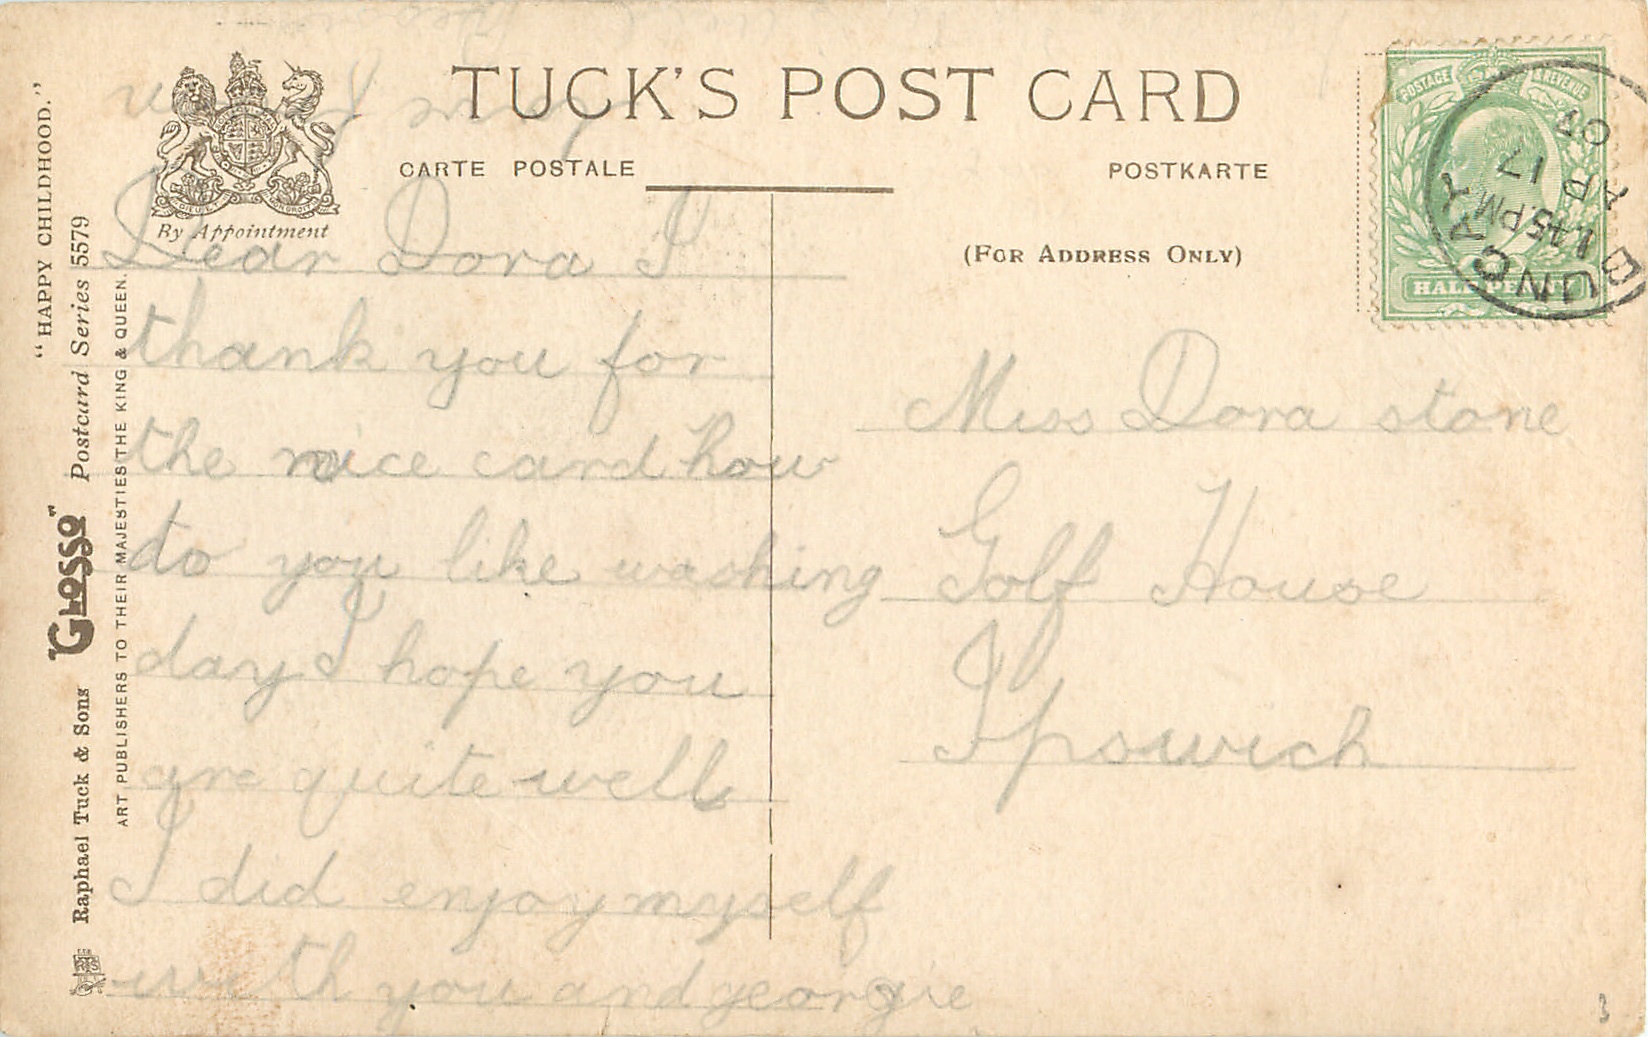 TUCK'S POST CARD
CARTE POSTALE
POSTKARTE
By Appointment
(FOR ADDRESS ONLY)
"HAPPY CHILDHOOD."
Raphael Tuck & Sons "GLOSSO" Postcard Series 5579
ART PUBLISHERS TO THEIR MAJESTIES THE KING & QUEEN.
POSTAGE & REVENUE
HALFPENNY
BUNGAY
1.45 PM
AP 17
07
Dear Dora I
thank you for
the nice card how
do you like washing
day I hope you
are quite well
I did enjoy myself
with you and georgie
Miss Dora stone
Golf House
Ipswich
3